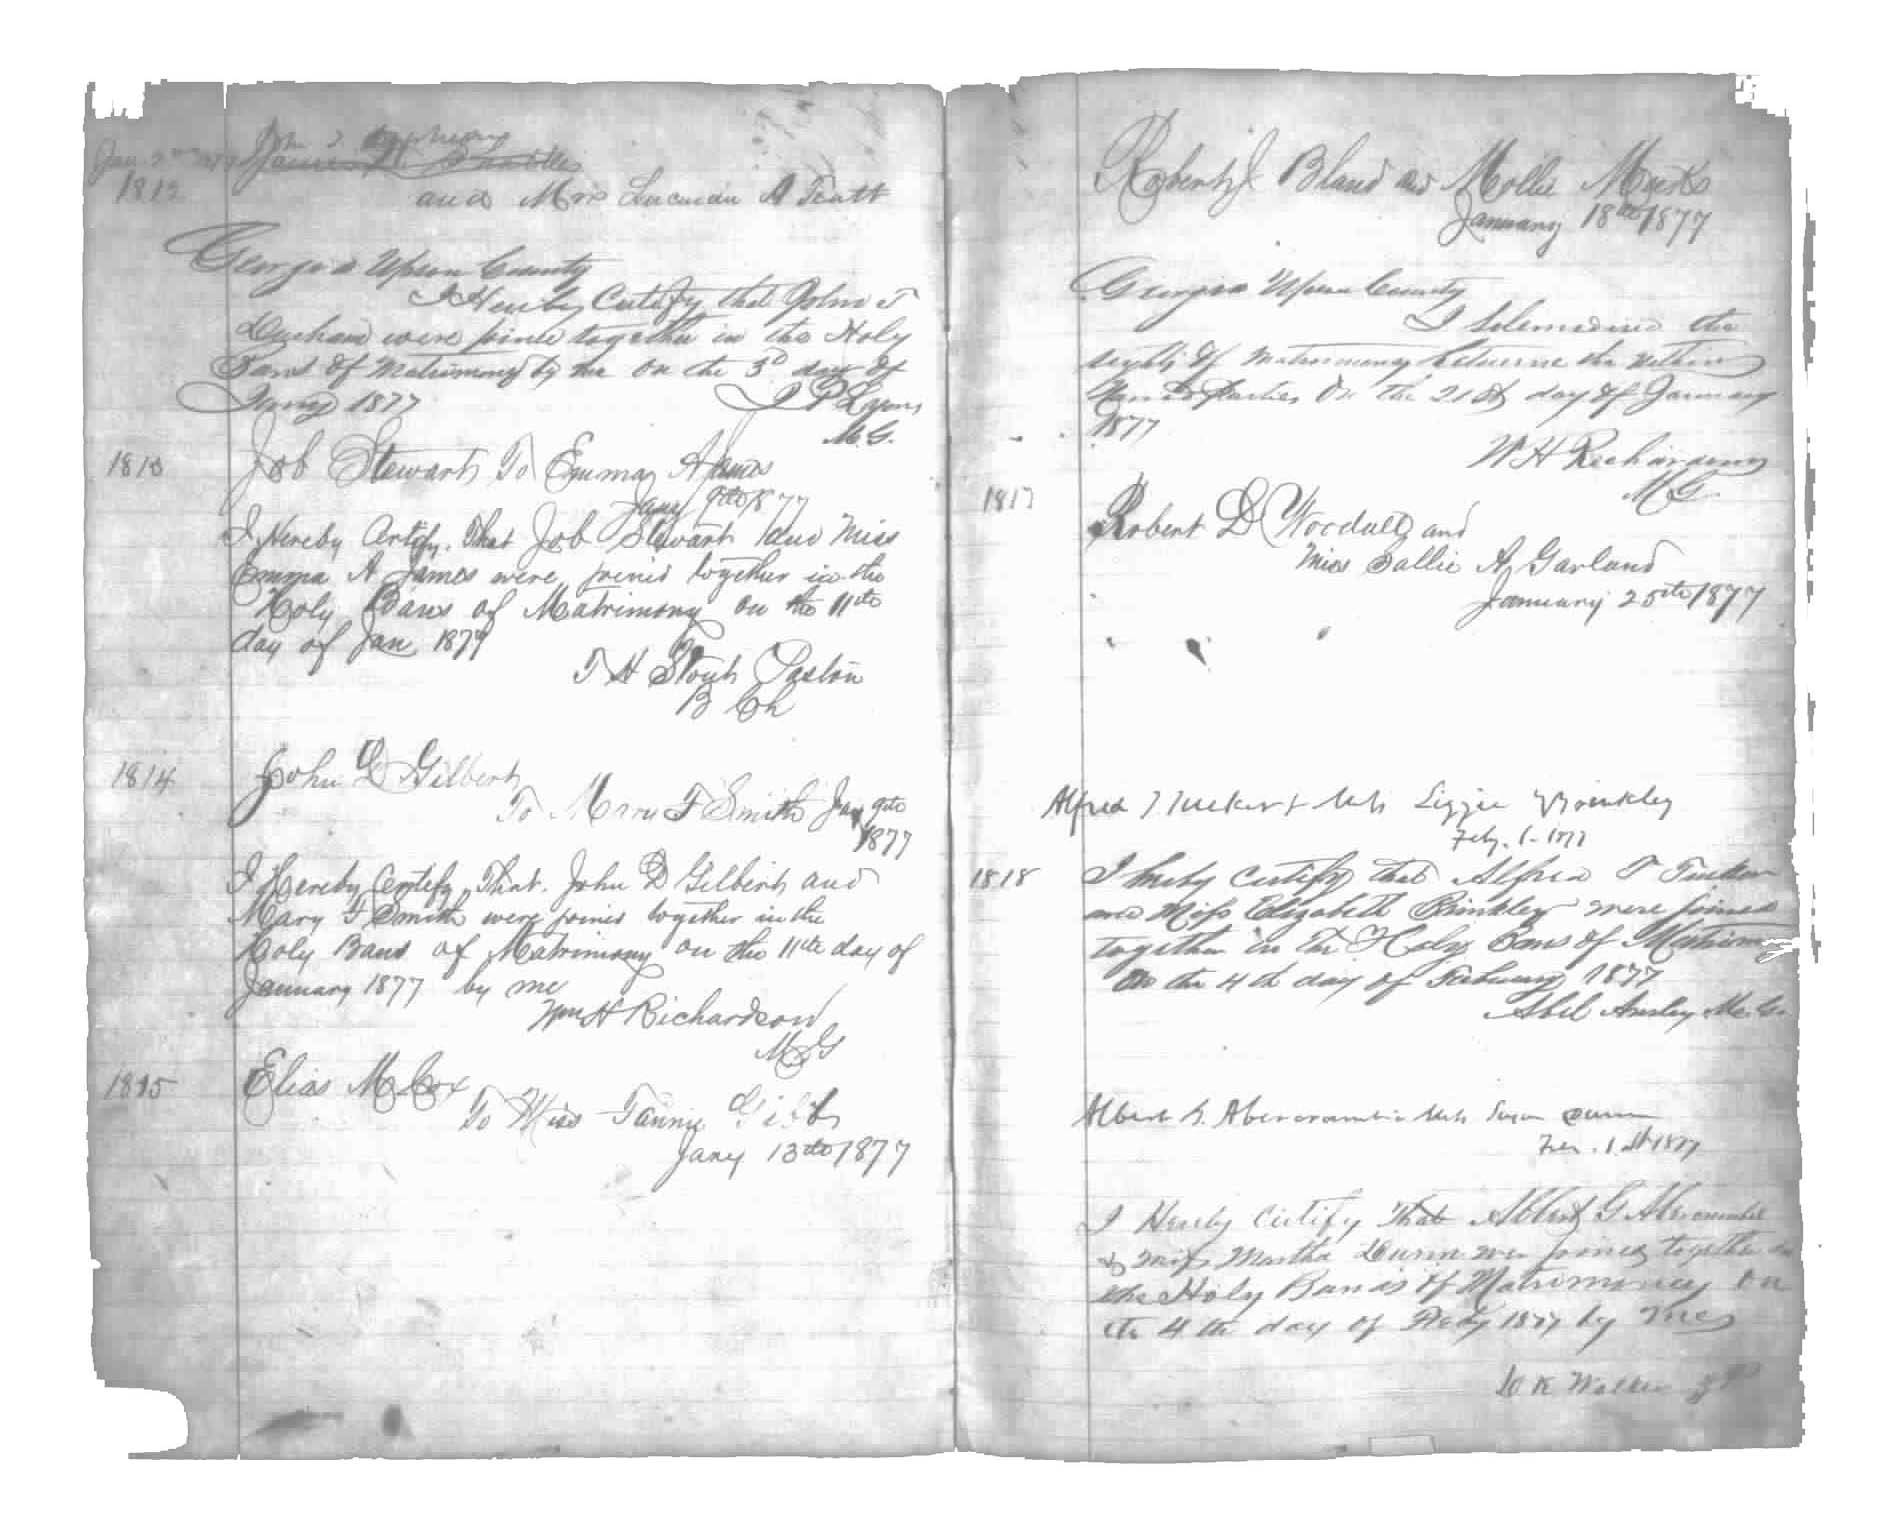 Jan 2nd 1877
John T
1812
and Mrs A Truitt
Georgia Upson County
I Hereby Certify that John T
Durham were joined together in the Holy
Bans of Matrimony by me on the 3d day of
Jany 1877 J P Lyons
M. G.
1813 Job Stewart To Emma A James
Jany 9th 1877
I Hereby Certify, That Job Stewart and Miss
Emma A James were joined together in the
Holy Bans of Matrimony on the 11th
day of Jan 1877
T H Stout Pastor
B Ch
1814 John D Gilbert
To Mary F Smith Jany 9th
1877
I Hereby Certify, That John D Gilbert and
Mary F Smith were joined together in the
Holy Bans of Matrimony on the 11th day of
January 1877 by me
Wm H Richardson
M G
1815 Elias M Cox
To Miss Fannie Gibbs
Jany 13th 1877
Robert J Bland and Mollie
January 18th 1877
Georgia Upson County
I Solemnized the
rights of matrimony betweene the within
Named Parties On the 21st day of January
1877
W H Richardson
M G
1817 Robert D Woodall and
Miss Sallie A. Garland
January 25th 1877
Alfred T Tucker & Miss Lizzie Brinkley
Feby. 1. 1877
1818 I hereby Certify that Alfred T Tucker
and Miss Elizabeth Brinkley were joined
together in the Holy Bans of Matrimony
On the 4th day of Febuary 1877
Abel Ansley M. G.
Albert G. Abercrombie Miss Susan Dunn
Feb. 1st 1877
I Hereby Certify That Albert G Abercrombie
& Miss Martha Dunn were joined together in
the Holy Bands of Matrimoney On
the 4th day of Feby 1877 by me
Walker J P